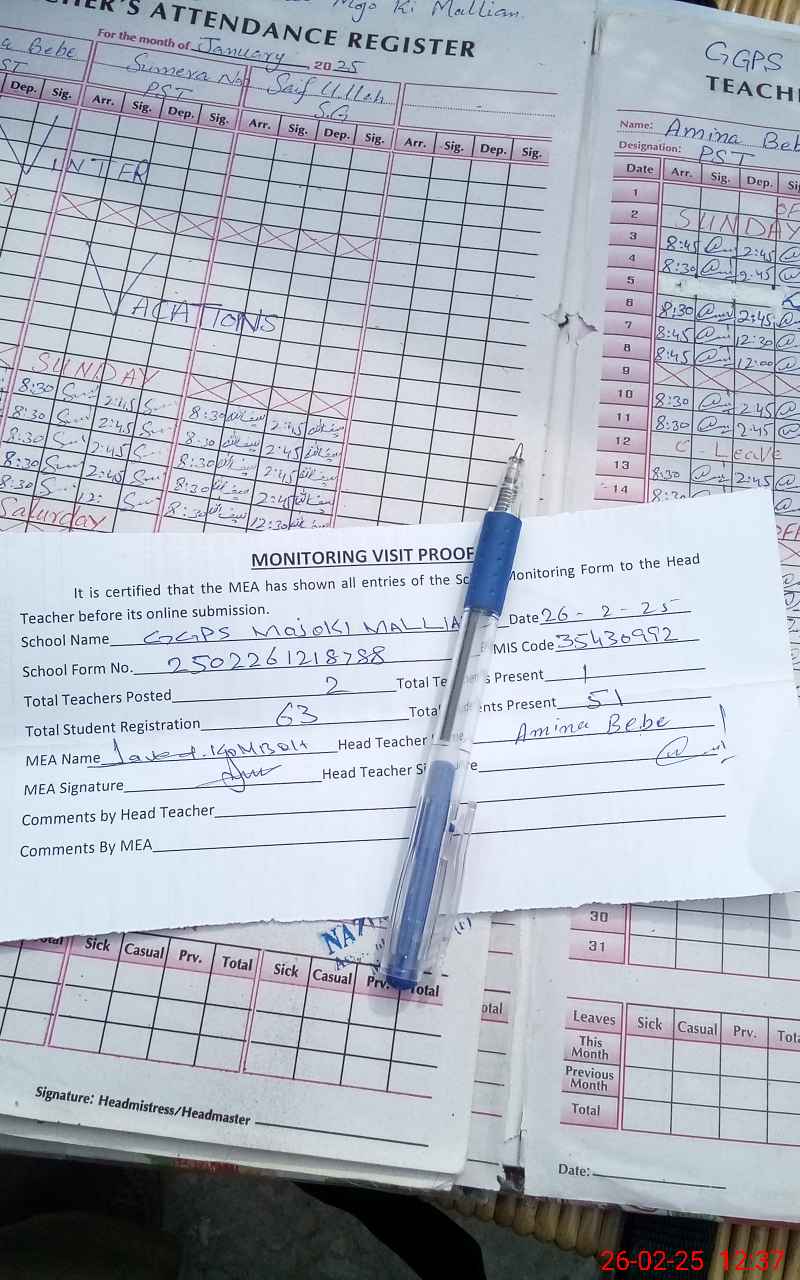 Mojo Ki Mallian.
HER'S ATTENDANCE REGISTER
For the month of January 2025
a Bebe
ST
Sumera
PST
Saif Ullah
S.G
Dep. Sig. Arr. Sig. Dep. Sig. Arr. Sig. Dep. Sig. Arr. Sig. Dep. Sig.
WINTER
VACATIONS
SUNDAY
8:30 2:45 8:30 2:45
8:30 2:45 8:30 2:45
8:30 2:45 8:30 2:45
8:30 2:45 8:30 2:45
8:30 12: 8:30 12:30
Saturday
GGPS
TEACH
Name: Amina Bebe
Designation: PST
Date Arr. Sig. Dep.
1
2 SUNDAY
3 8:45 2:45
4 8:30 2:45
5
6 8:30 2:45
7 8:45 12:30
8 8:45 12:00
9
10 8:30 2:45
11 8:30 2:45
12 C-Leave
13 8:30 2:45
14
MONITORING VISIT PROOF
It is certified that the MEA has shown all entries of the Sc Monitoring Form to the Head
Teacher before its online submission.
School Name GGPS MOJOKI MALLIA Date 26-2-25
School Form No. 2502261218788 EMIS Code 35430992
Total Teachers Posted 2 Total Te s Present 1
Total Student Registration 63 Total ents Present 51
MEA Name Head Teacher Amina Bebe
MEA Signature Head Teacher Si re
Comments by Head Teacher
Comments By MEA
30
31
NAZ
otal Sick Casual Prv. Total Sick Casual Prv. Total
otal
Signature: Headmistress/Headmaster
Leaves Sick Casual Prv. Tota
This Month
Previous Month
Total
Date:
26-02-25 12:37